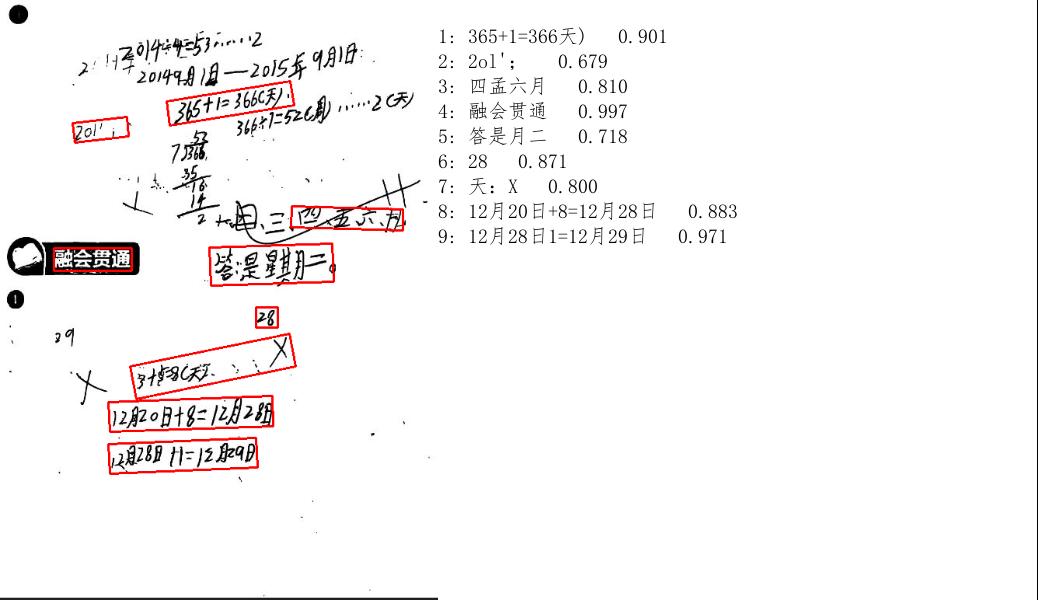 2014÷4=53……2
2014年9月1日—2015年9月1日
365+1=366(天)
366÷7=52(周)……2(天)
201'；
52
7 366
35
16
14
2
二、三、四、五、六、九
答:是星期二。
融会贯通
28
29
3+5=8(天)
12月20日+8=12月28日
12月28日+1=12月29日
1: 365+1=366天) 0.901
2: 2ol'; 0.679
3: 四孟六月 0.810
4: 融会贯通 0.997
5: 答是月二 0.718
6: 28 0.871
7: 天: X 0.800
8: 12月20日+8=12月28日 0.883
9: 12月28日1=12月29日 0.971